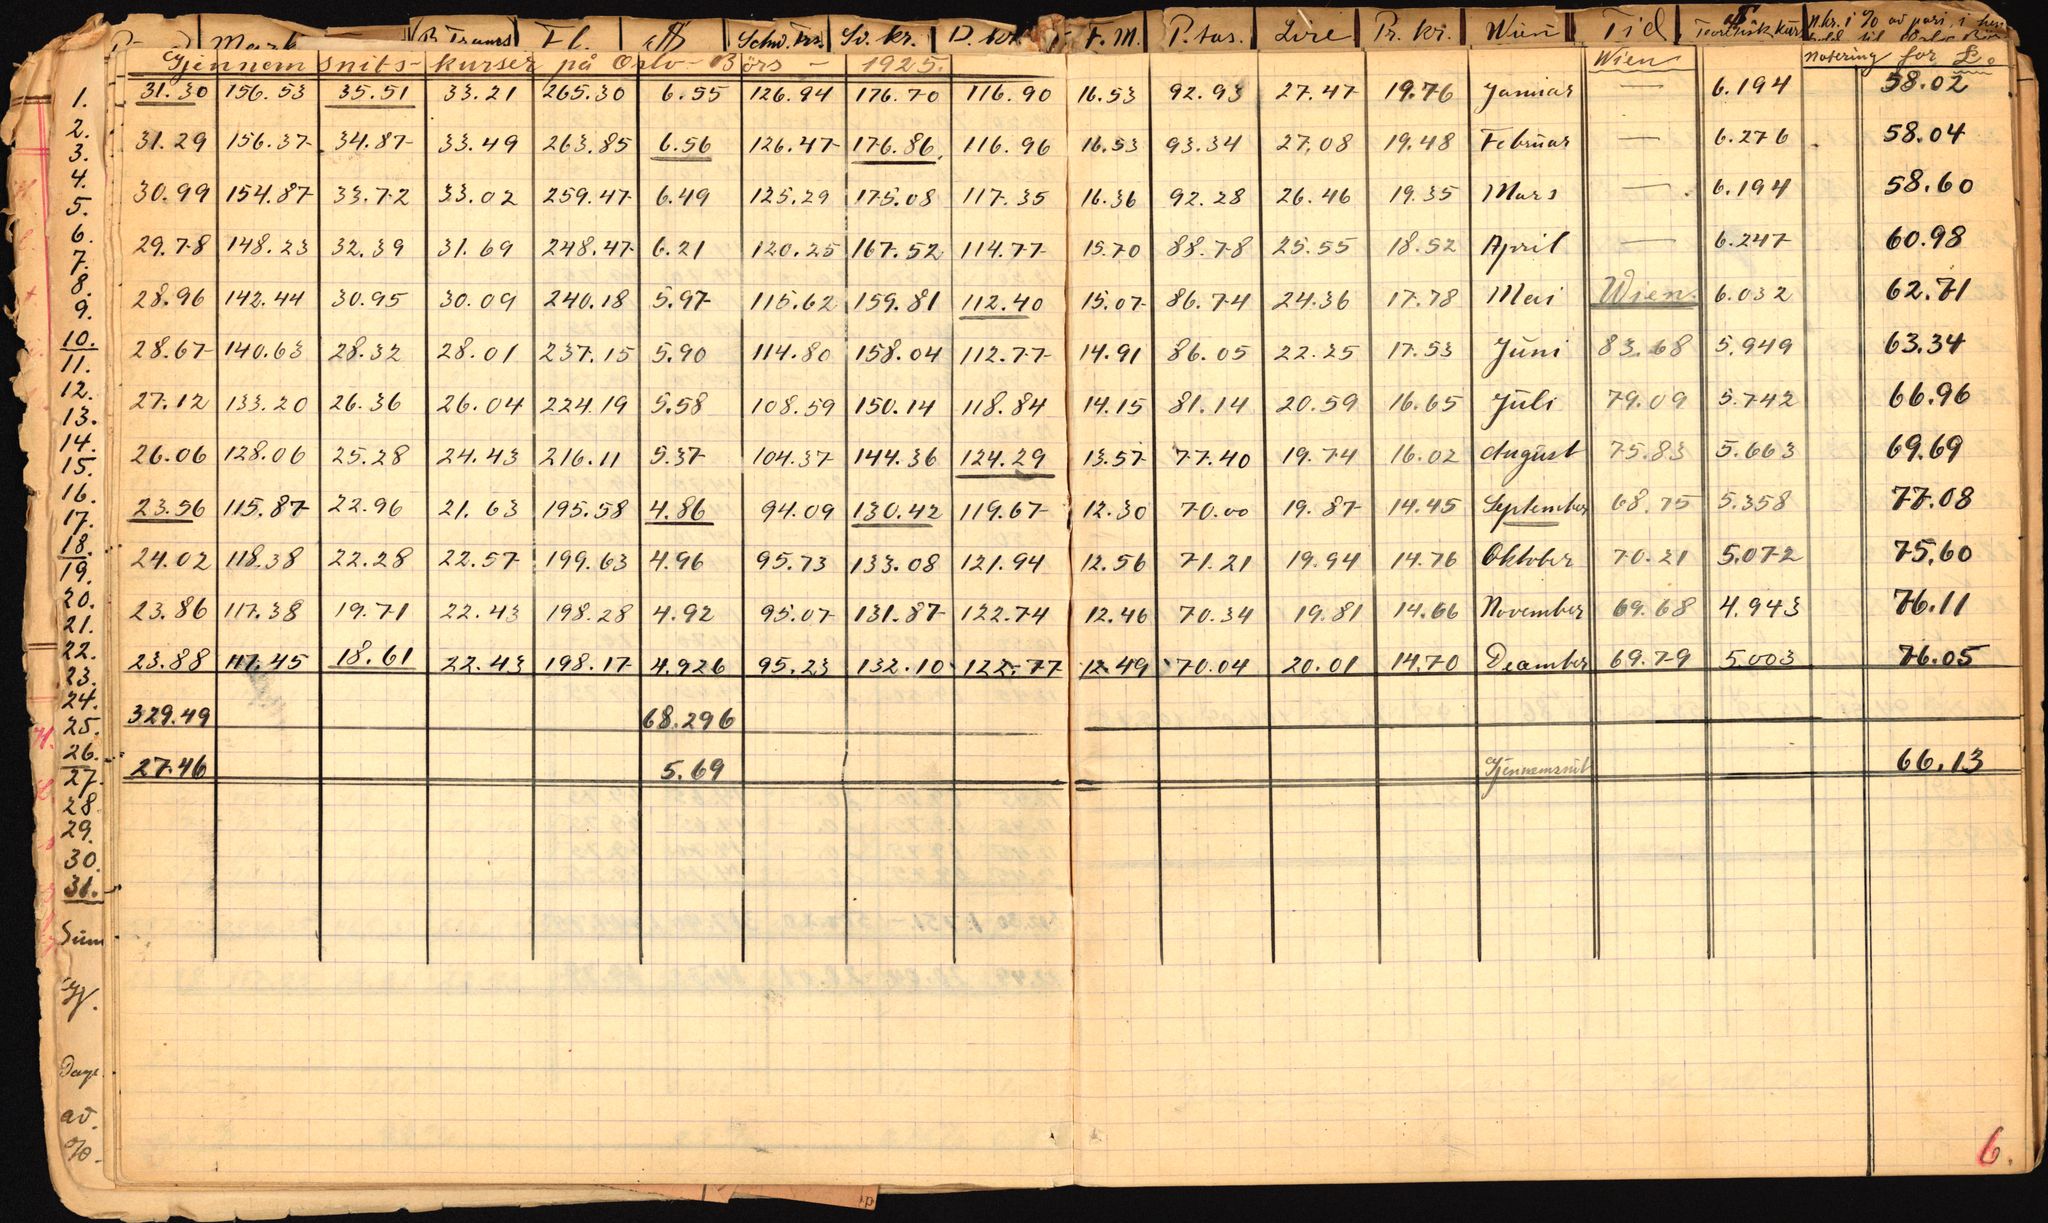 Mark B. Francs Fl. $ Schw. frs. Sv. kr. D. kr. F. M. P.tas. Lire Pr. kr. Wien Tid Teoretisk kurs N.kr. i % av pari, i hen
hold til Oslo Børs
Gjennemsnits-kurser på Oslo-Børs - 1925. Wien Notering for £.
1. 31.30 156.53 35.51 33.21 265.30 6.55 126.94 176.70 116.90 16.53 92.93 27.47 19.76 Januar — 6.194 58.02
2.
3. 31.29 156.37 34.87 33.49 263.85 6.56 126.47 176.86 116.96 16.53 93.34 27.08 19.48 Februar — 6.276 58.04
4.
5. 30.99 154.87 33.72 33.02 259.47 6.49 125.29 175.08 117.35 16.36 92.28 26.46 19.35 Mars — 6.194 58.60
6.
7. 29.78 148.23 32.39 31.69 248.47 6.21 120.25 167.52 114.77 15.70 88.78 25.55 18.52 April — 6.247 60.98
8.
9. 28.96 142.44 30.95 30.09 240.18 5.97 115.62 159.81 112.40 15.07 86.74 24.36 17.78 Mai Wien. 6.032 62.71
10.
11. 28.67 140.63 28.32 28.01 237.15 5.90 114.80 158.04 112.77 14.91 86.05 22.25 17.53 Juni 83.68 5.949 63.34
12.
13. 27.12 133.20 26.36 26.04 224.19 5.58 108.59 150.14 118.84 14.15 81.14 20.59 16.65 Juli 79.09 5.742 66.96
14.
15. 26.06 128.06 25.28 24.43 216.11 5.37 104.37 144.36 124.29 13.57 77.40 19.74 16.02 August 75.83 5.663 69.69
16.
17. 23.56 115.87 22.96 21.63 195.58 4.86 94.09 130.42 119.67 12.30 70.00 19.87 14.45 September 68.75 5.358 77.08
18.
19. 24.02 118.38 22.28 22.57 199.63 4.96 95.73 133.08 121.94 12.56 71.21 19.94 14.76 Oktober 70.21 5.072 75.60
20.
21. 23.86 117.38 19.71 22.43 198.28 4.92 95.07 131.87 122.74 12.46 70.34 19.81 14.66 November 69.68 4.943 76.11
22.
23. 23.88 117.45 18.61 22.43 198.17 4.926 95.23 132.10 122.77 12.49 70.04 20.01 14.70 Deamber 69.79 5.003 76.05
24.
25. 329.49 68.296
26.
27. 27.46 5.69 Gjennemsnit 66.13
28.
29.
30.
31.
Sum
Gj.
Dage
av.
%
6.